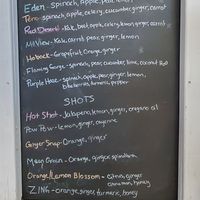 Eden - spinach, apple, pear, lemon
Tero - spinach, apple, celery, cucumber, ginger, carrot
Red Desert - Kale, beet, apple, celery, lemon, ginger, carrot
Mill View - Kale, carrot, pear, ginger, lemon
Hoback - Grapefruit, Orange, ginger
Flaming Gorge - spinach, pear, cucumber, lime, coconut
Purple Haze - spinach, apple, pear, ginger, lemon,
blueberries, turmeric, pepper
SHOTS
Hot Shot - Jalapeno, lemon, ginger, oregano oil
Pow Pow - lemon, ginger, cayenne
Ginger Snap - Orange, ginger
Green - Orange, ginger, spirulina
Orange/Lemon Blossom - Citrus, ginger
cinnamon, honey
ZING - orange, ginger, turmeric, honey